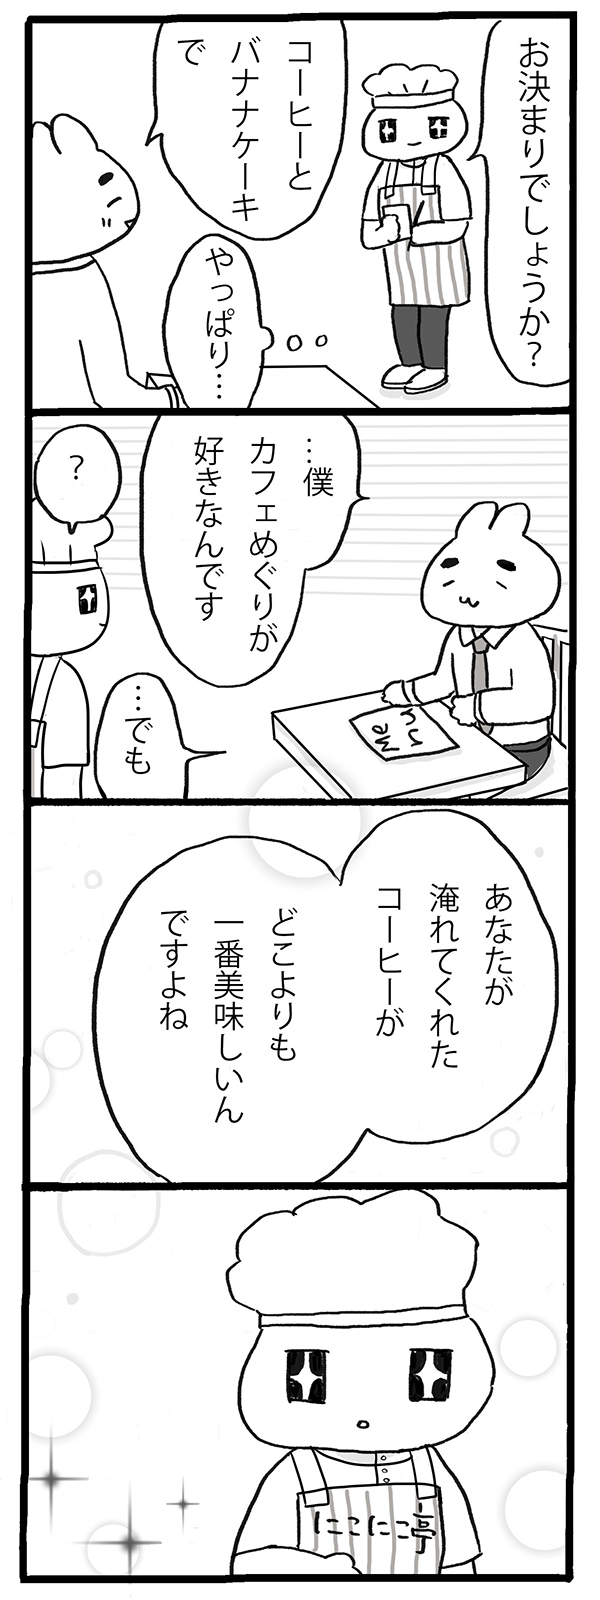 お決まりでしょうか？
コーヒーと
バナナケーキ
で
やっぱり…
…僕
カフェめぐりが
好きなんです
？
…でも
Me
nu
あなたが
淹れてくれた
コーヒーが
どこよりも
一番美味しいん
ですよね
にこにこ亭